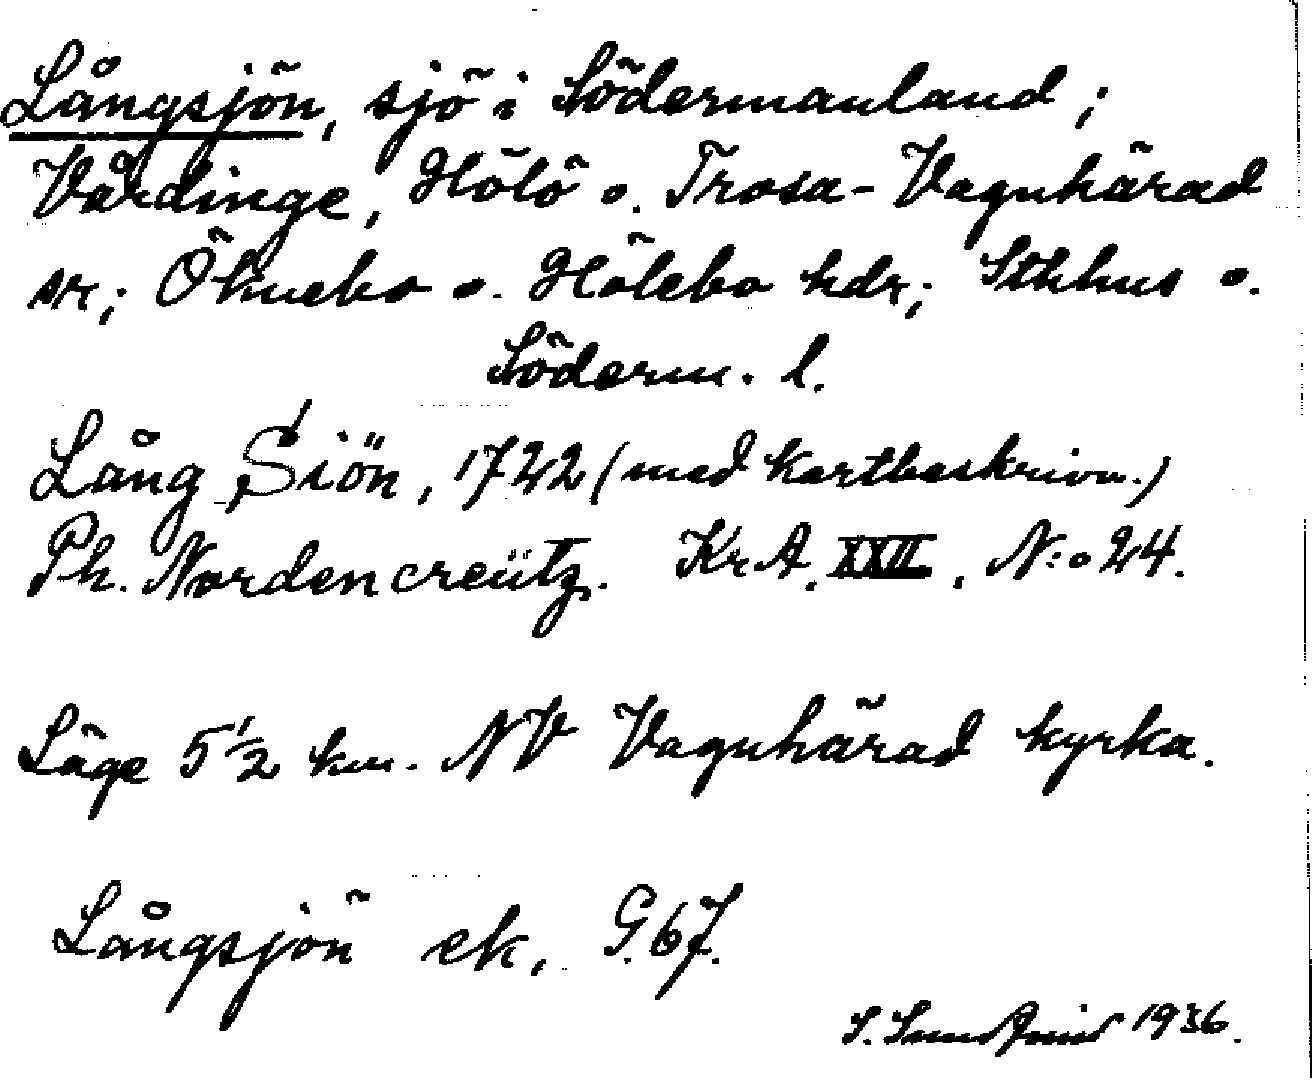 Långsjön, sjö i Södermanland;
Vårdinge, Hölö o. Trosa-Vagnhärad
sr; Öknebo o. Hölebo hdr; Sthlms o.
Söderm. l.
Lång Siön, 1722 (med kartbeskrivn.)
Ph. Nordencreütz. KrA. XXII. N:o 24.
Läge 5 1/2 km. NV Vagnhärad kyrka.
Långsjön ek. G. 67.
S. 1936.